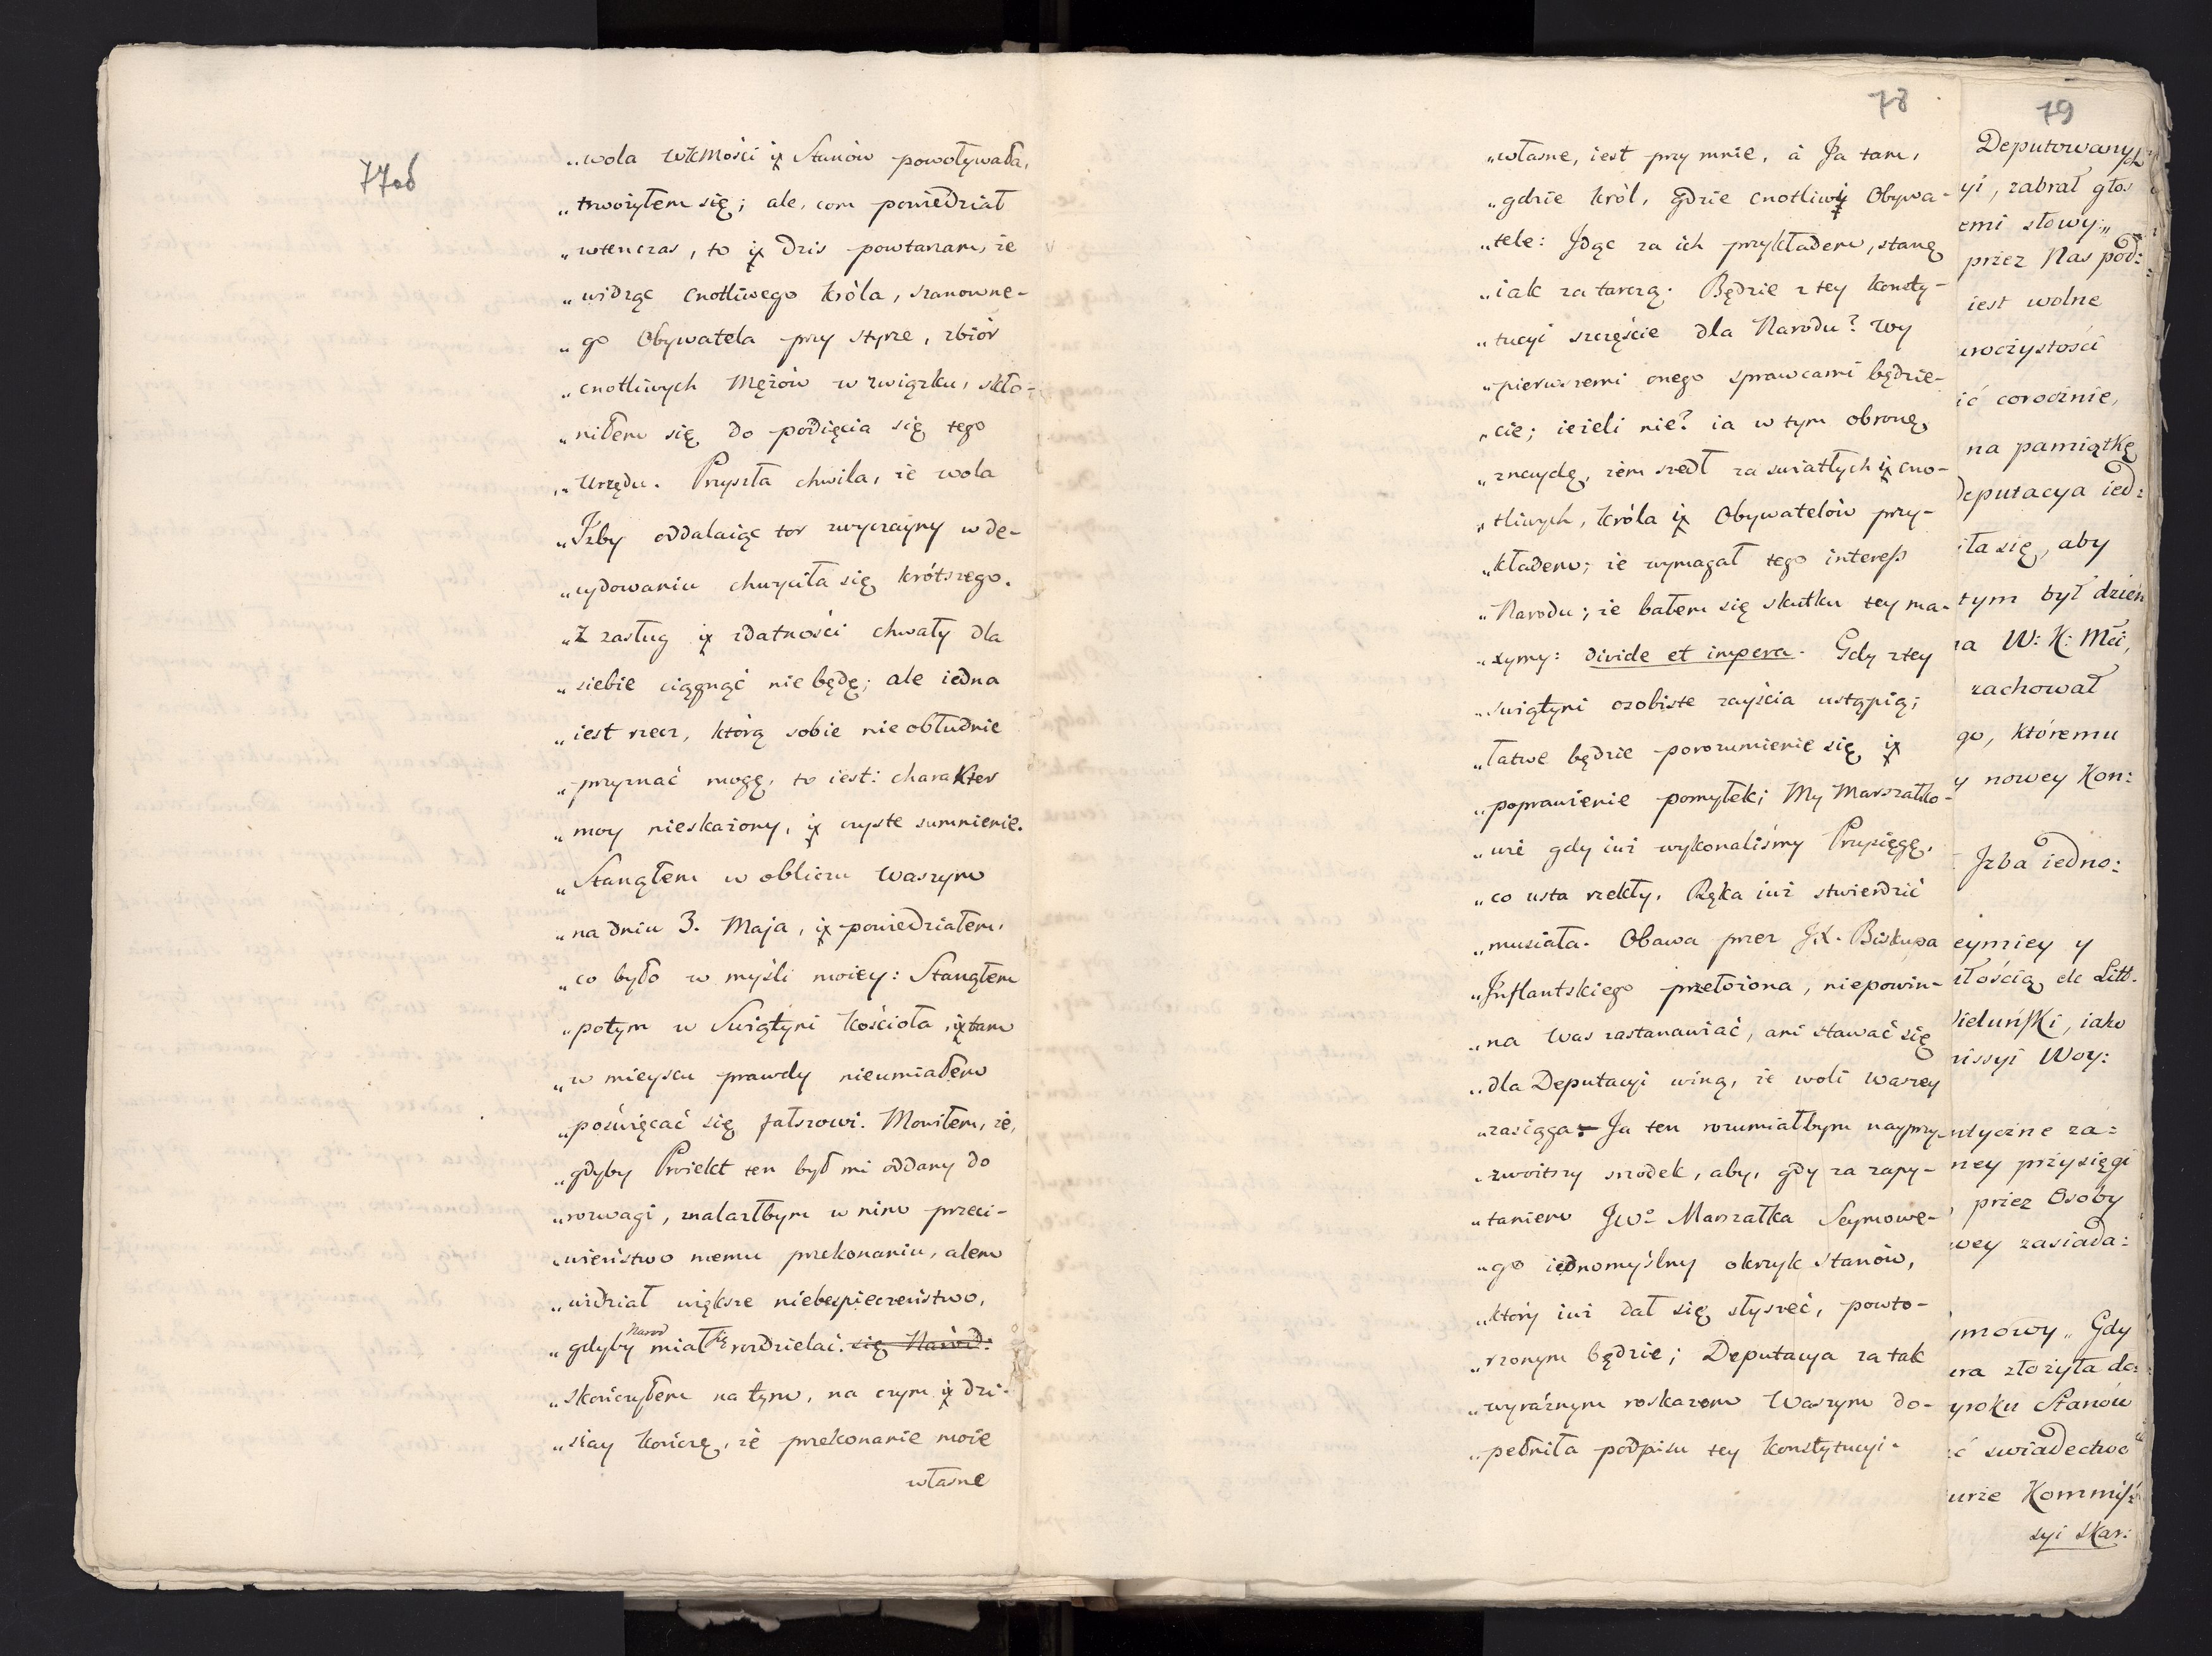 77ob
„wola WKMości ix Stanów powoływała,
„trwożyłem się; ale, com powiedział
„wtenczas, to ix dzis powtarzam, że
„widząc cnotliwego Króla, szanowne-
„go Obywatela przy styrze, zbiór
„cnotliwych Mężów w związku, skło-
„niłem się do podięcia się tego
„Urzędu. Przyszła chwila, że wola
„Izby oddalaiąc tor zwyczayny w de-
„cydowaniu chwyciła się krótszego.
„Z zasług ix zdatności chwały dla
„siebie ciągnąć nie będę; ale iedna
„iest rzecz, którą sobie nieobłudnie
„przyznać mogę, to iest: charakter
„moy nieskażony, ix czyste sumnienie.
„Stanąłem w obliczu Waszym
„na dniu 3. Maja, ix powiedziałem,
„co było w myśli moiey: Stanąłem
„potym w Swiątyni Kościoła, ix tam
„w mieyscu prawdy nieumiałem
„poświęcać się fałszowi. Mowiłem, że,
„gdyby Proiekt ten był mi oddany do
„rozwagi, znalazłbym w nim przeci-
„wieństwo memu przekonaniu, alem
„widział większe niebespieczeństwo,
„gdyby Narod miał się rozdzielać. się Naród:
„skończyłem na tym, na czym ix dzi-
„siay kończę, że przekonanie moie
własne
78
„własne, iest przy mnie, à Ja tam,
„gdzie Król, gdzie cnotliwi Obywa-
„tele: Idąc za ich przykładem, stanę
„iak za tarczą. Będzie z tey Konsty-
„tucyi szczęście dla Narodu? Wy
„pierwszemi onego sprawcami będzie-
„cie; ieżeli nie? ia w tym obronę
„znaydę, żem szedł za swiatłych ix cno-
„tliwych, Króla ix Obywatelów przy-
„kładem; że wymagał tego interess
„Narodu; że bałem się skutku tey ma-
„xymy: divide et impera. Gdy z tey
„swiątyni ozobiste zayścia ustąpią;
„łatwe będzie porozumienie się ix
„poprawienie pomyłek; My Marszałko-
„wie gdy iuż wykonaliśmy Przysięgę,
„co usta rzekły, Ręka iuż stwierdzić
„musiała. Obawa przez JX. Biskupa
„Inflantskiego przełożona, niepowin-
„na Was zastanawiać, ani stawać się
„dla Deputacyi winą, że woli waszey
„zasięga: Ja ten rozumiałbym nayprzy-
„zwoitszy srodek, aby, gdy za zapy-
„taniem JWo Marszałka Seymowe-
„go iednomyślny okrzyk Stanów,
„który iuż dał się słyszeć, powto-
„rzonym będzie; Deputacya za tak
„wyraźnym roskazem Waszym do-
„pełniła podpisu tey Konstytucyi.
79
Deputowanych
yi, zabrał głos
emi słowy„
przez Nas pod:
iest wolne
uroczystości
ić corocznie,
na pamiątkę
Deputacya ied:
iła się, aby
tym był dzień
na W: K: Mci,
zachował
go, któremu
y nowey Kon:
Izba iedno:
eymiey y
iłością etc Litt.
Wieluński, iako
missyi Woy:
ntyczne za:
ney przysięgi
przez Osoby
wey zasiada:
ymowy „ Gdy
era złożyła do:
yroku Stanów
ć swiadectwo
urze Kommiss:
syi Skar: